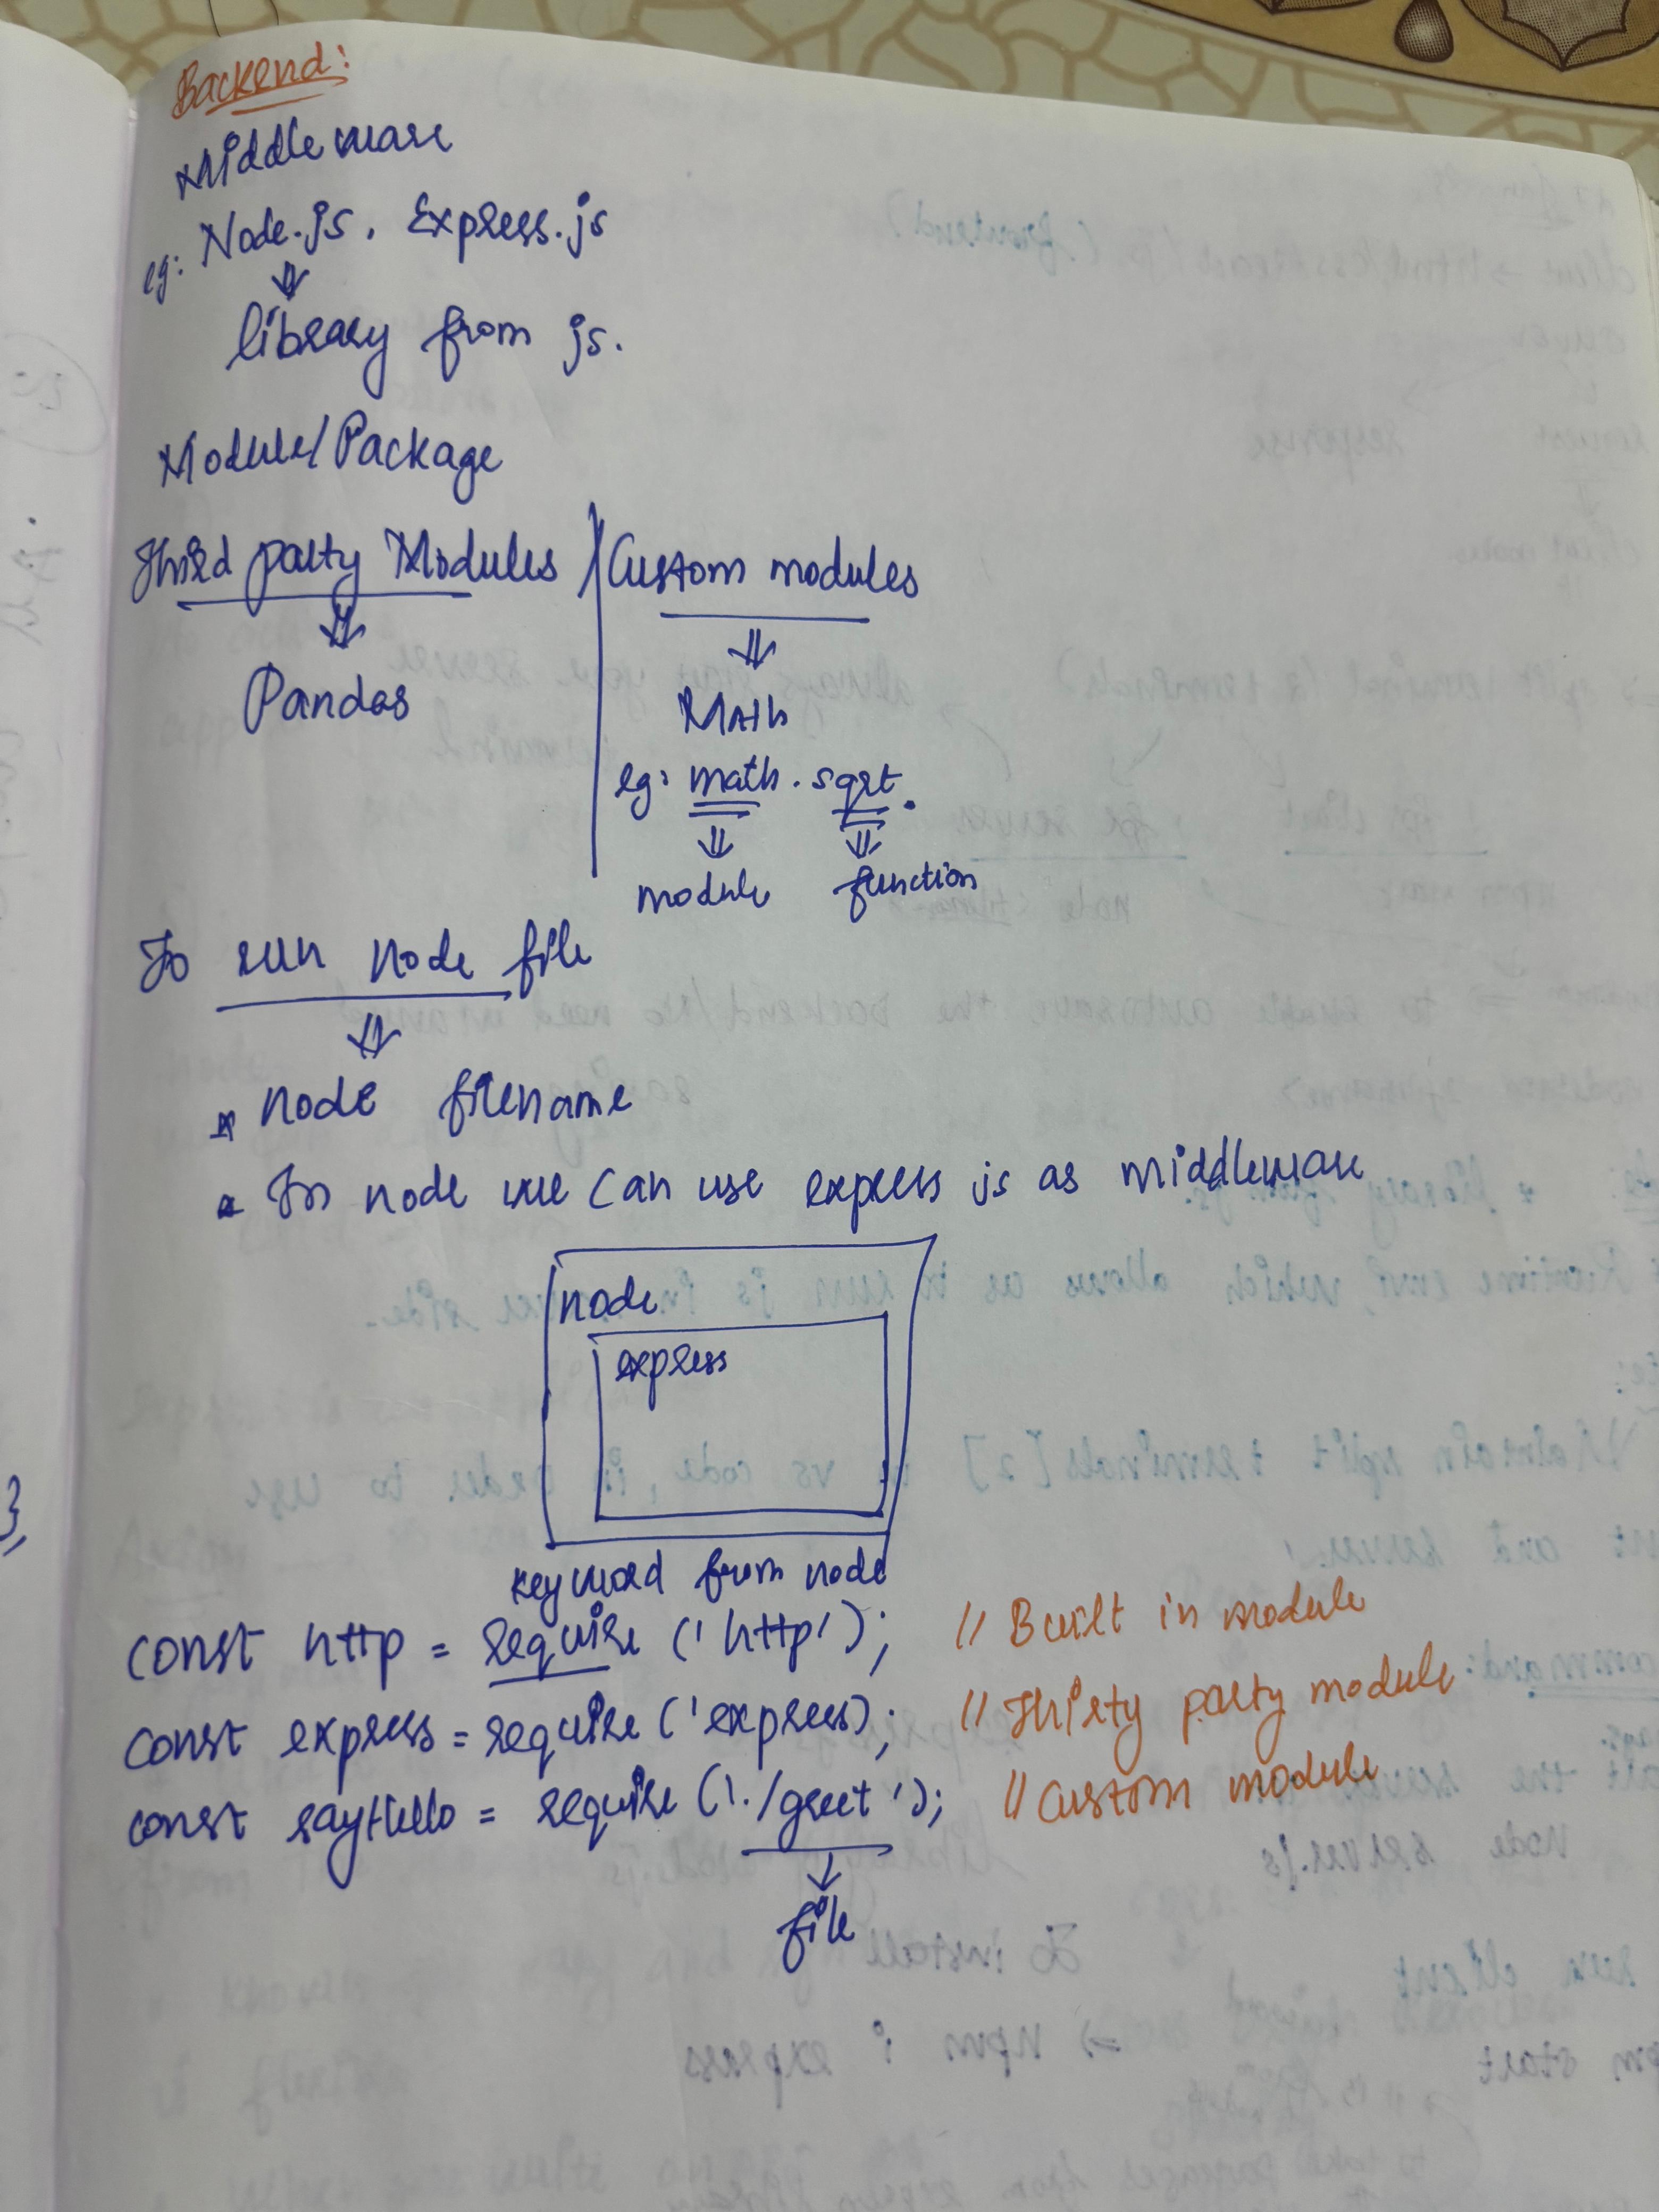 Backend:
Middleware
eg: Node.js, Express.js
library from js.
Module/Package
Third party Modules
Pandas
Custom modules
Math
eg: math.sqrt.
module function
To run node file
node filename
In node we can use express js as middleware
node
express
keyword from node
const http = require('http'); // Built in module
const express = require('express); // Thirty party module
const sayHello = require('./greet'); // Custom module
file